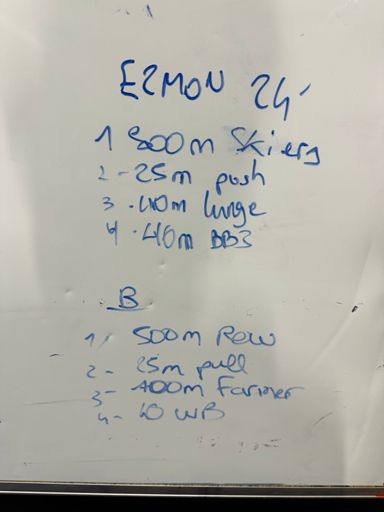 E2MON 24'
1 500m Skierg
2 - 25m push
3 - 40m lunge
4 - 40m BBJ
B
1/ 500m Row
2 - 25m pull
3 - 100m Farmer
4 - 40 WB